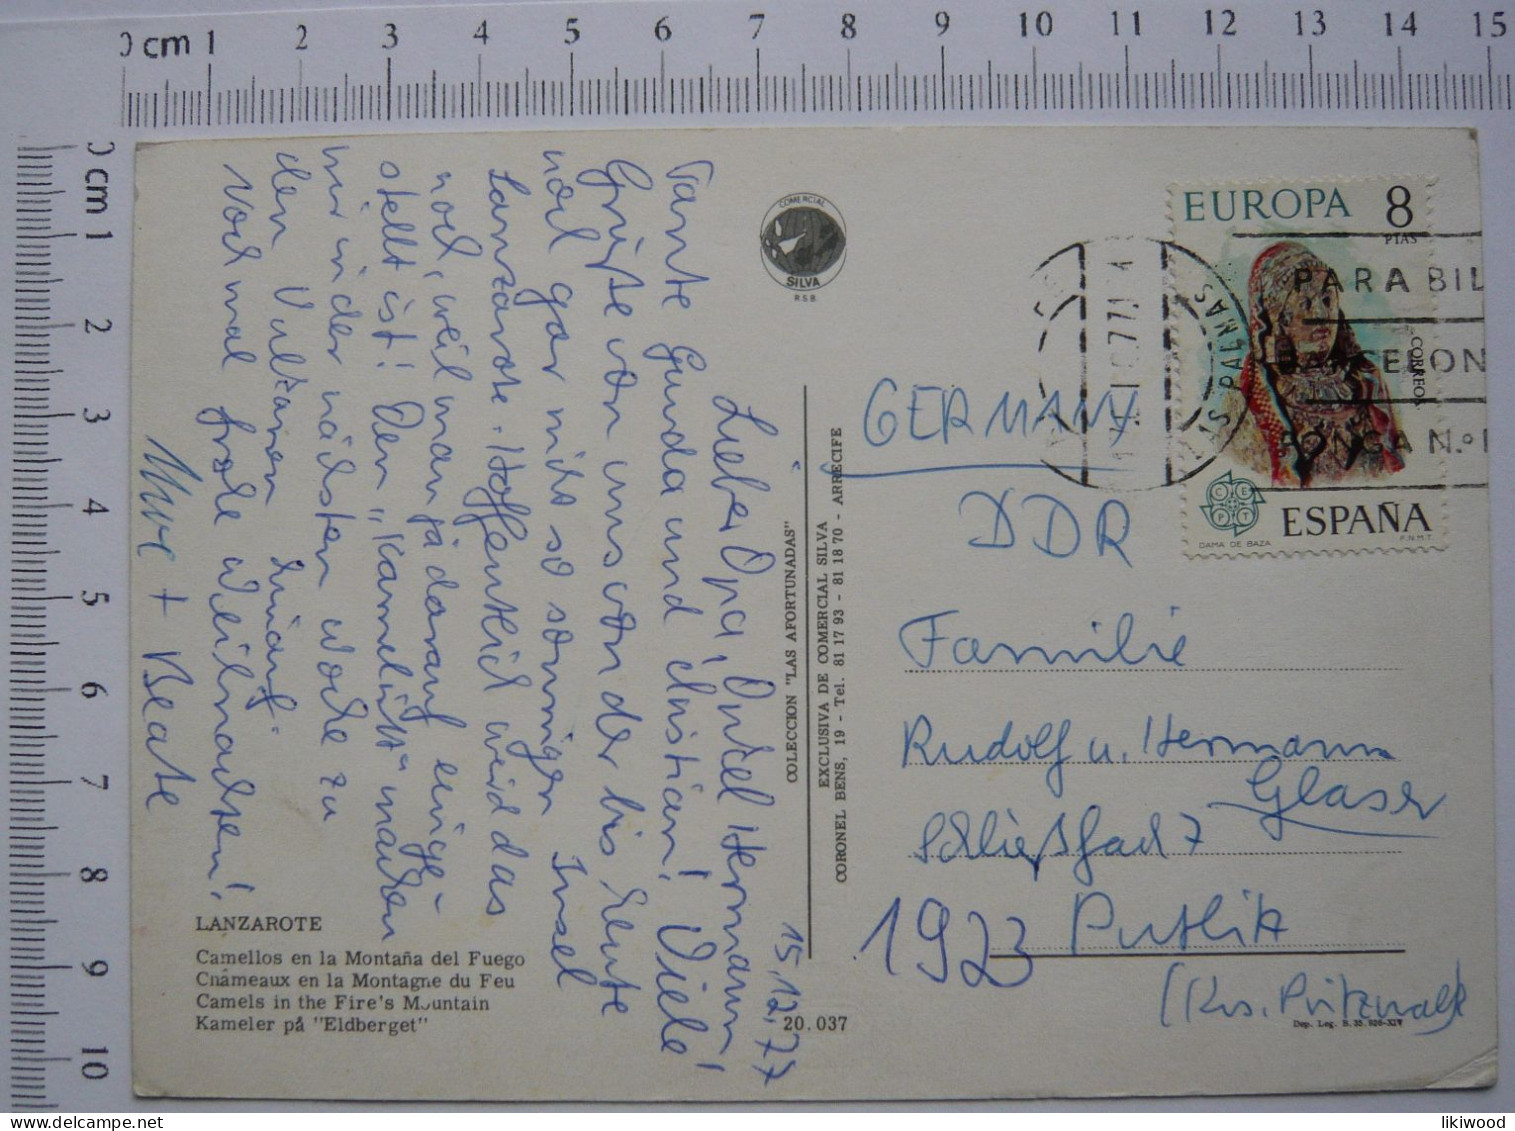 0 cm 1 2 3 4 5 6 7 8 9 10 11 12 13 14 15
0 cm 1 2 3 4 5 6 7 8 9 10
15.12.77
Lieber Opa, Onkel Hermann,
Tante Gunda und Christian! Viele
Grüße von uns von der bis heute
noch gar nicht so sonnigen Insel
Lanzarote. Hoffentlich wird das
noch, weil man ja darauf einge-
stellt ist! Den "Kamelritt" machen
wir in der nächsten Woche zu
den Vulkanen hinauf.
Noch mal frohe Weihnachten!
Uwe + Beate
LANZAROTE
Camellos en la Montaña del Fuego
Chameaux en la Montagne du Feu
Camels in the Fire's Mountain
Kameler på "Eldberget"
COMERCIAL
SILVA
RSB
COLECCION "LAS AFORTUNADAS"
EXCLUSIVA DE COMERCIAL SILVA
CORONEL BENS, 19 - Tel. 81 17 93 - 81 18 70 - ARRECIFE
20.037
EUROPA 8
PTAS
CORREOS
CEPT
ESPAÑA
DAMA DE BAZA
F.N.M.T.
LAS PALMAS
77
PARA BIL
BARCELON
PONGA N.º
GERMANY
DDR
Familie
Rudolf u. Hermann
Glaser
Schließfach 7
1923 Putlitz
(Krs. Pritzwalk)
Dep. Leg. B. 35.920-XIV
likiwood